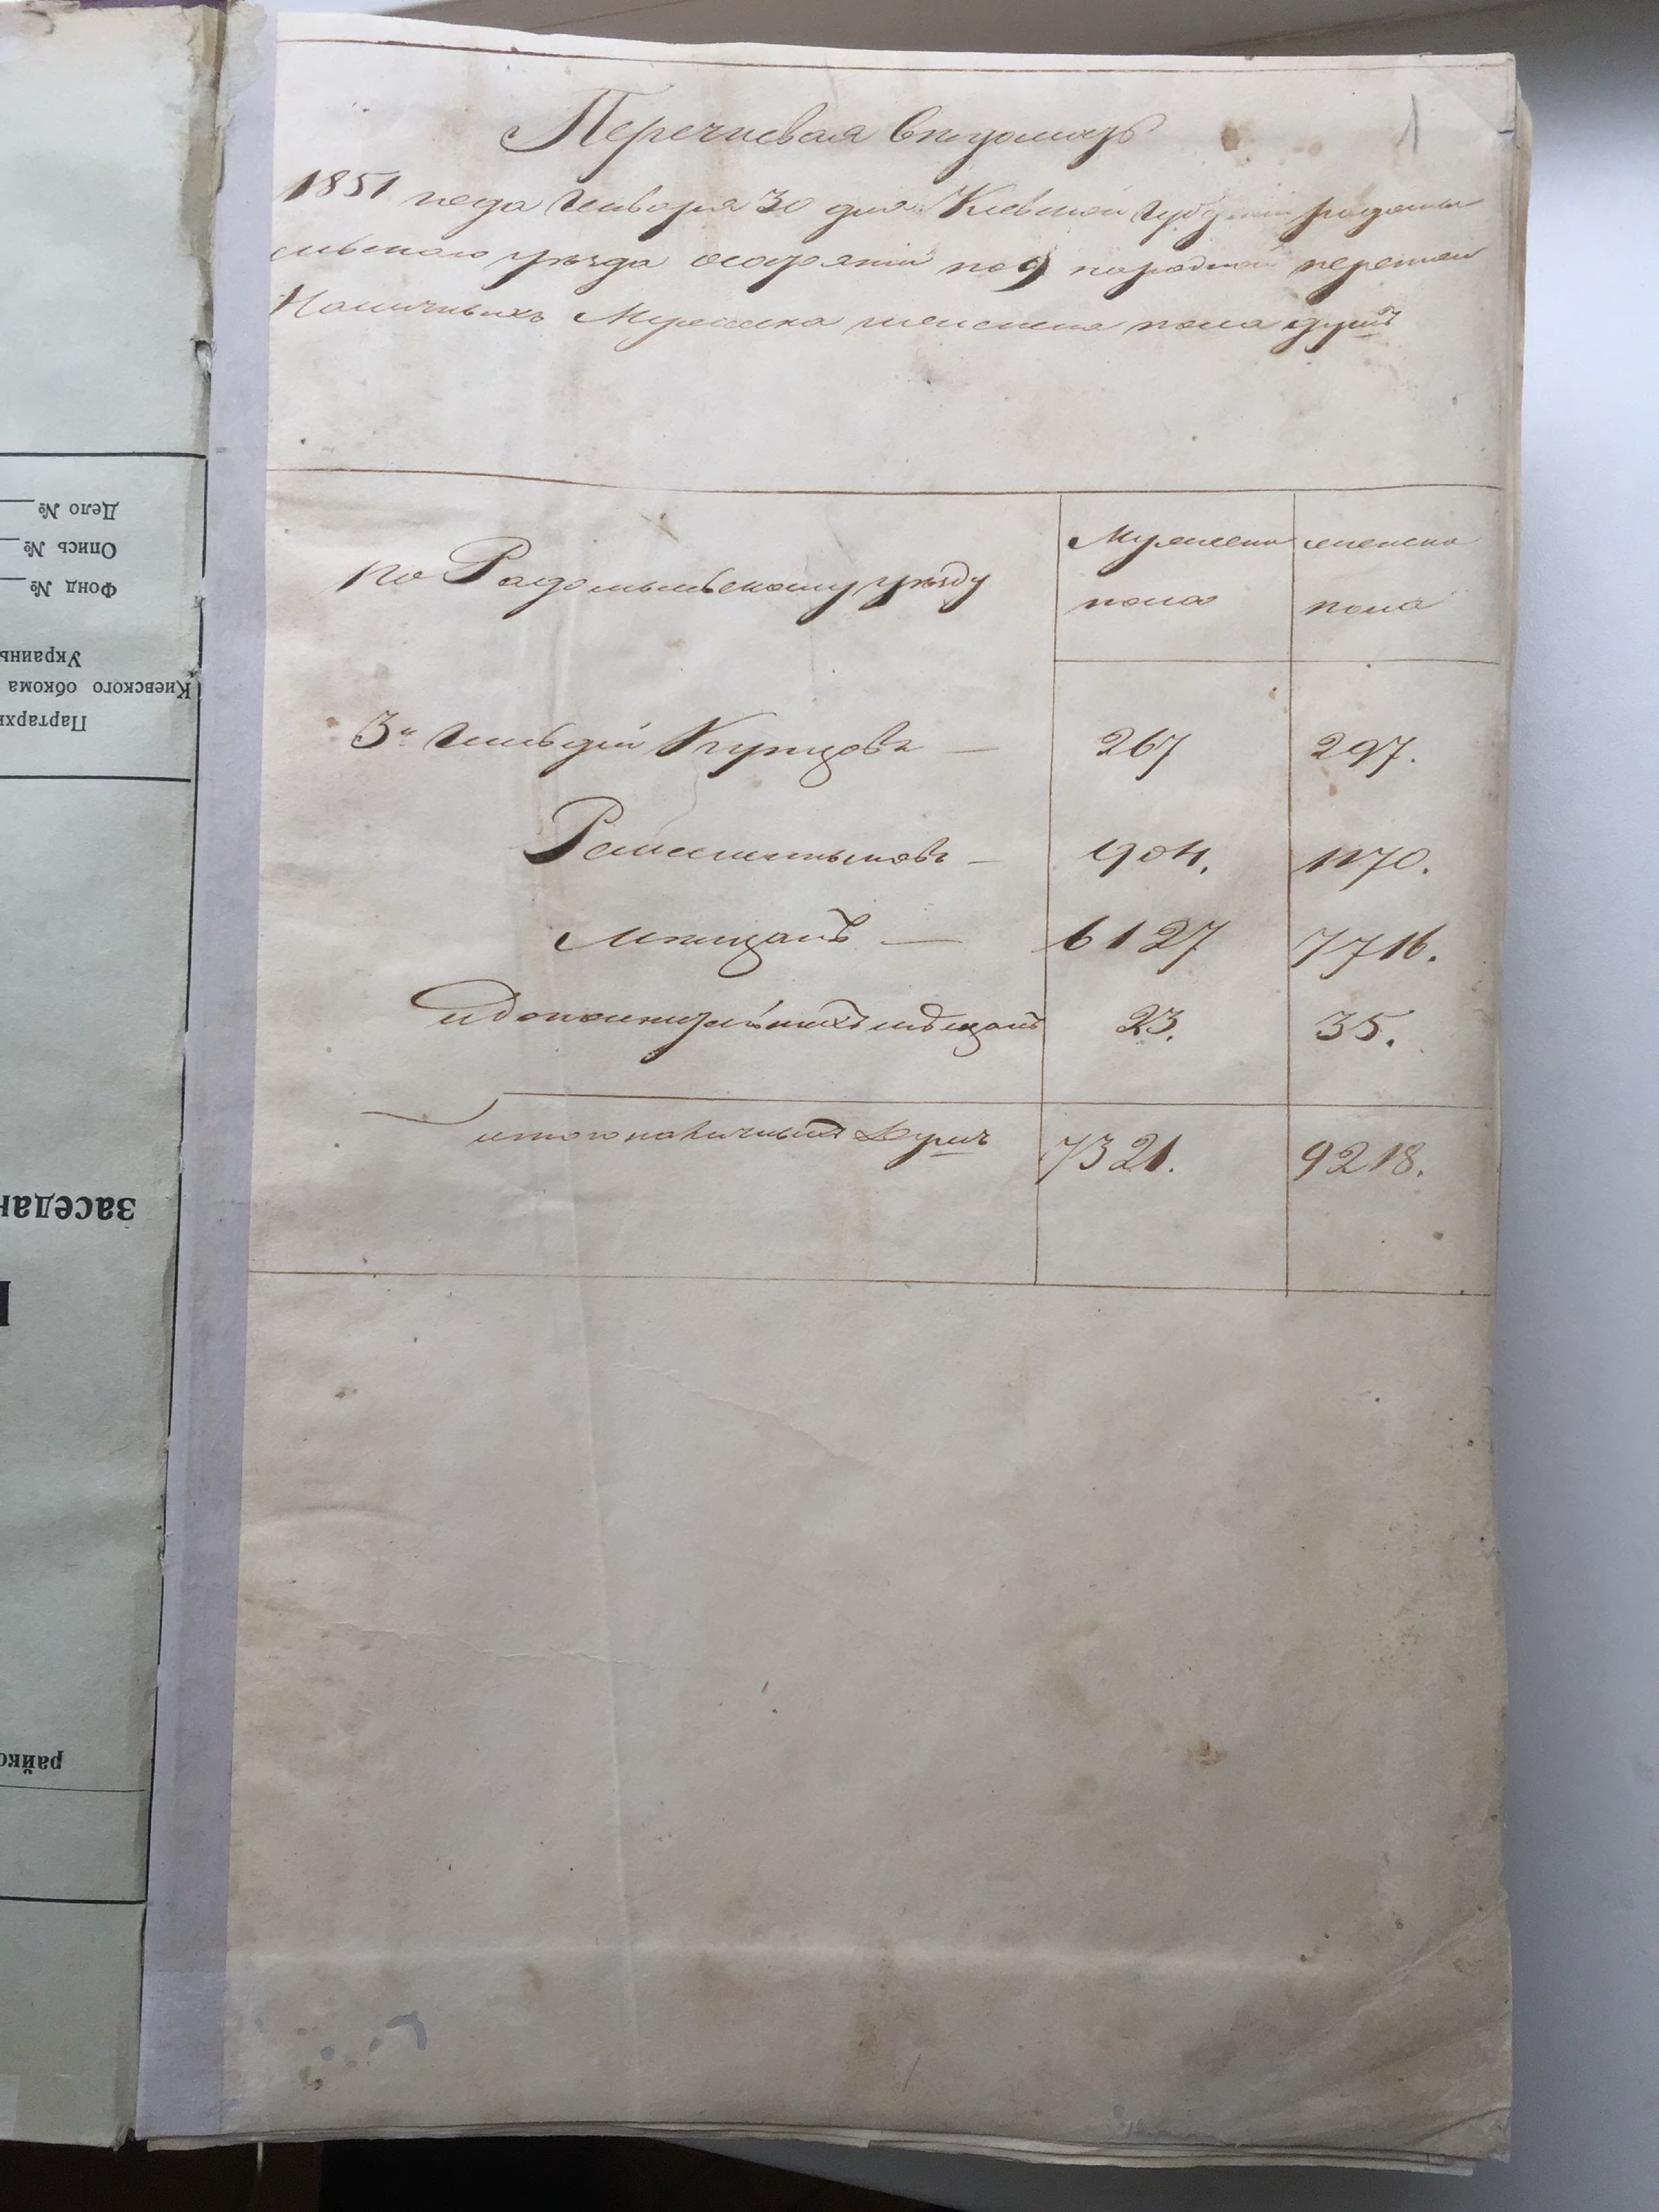 1
Перечневая ведомость
1851 года Января 30 дня Киевской Губернии Радомы
сльского уезда по 9 народной переписи
Наличныхъ Мужеска женска пола душъ
по Радомысльскому уезду
Мужеска пола
женска пола
3й Гильдіи Купцовъ — 267 297.
Ремесленниковъ — 904. 1170.
Мещанъ — 6127 7716.
и дополнительныхъ мещанъ 23. 35.
итого наличныхъ Душъ 7321. 9218.
Дело №
Опись №
Фонд №
Украины
Киевского обкома
Партархи
заседан
райко